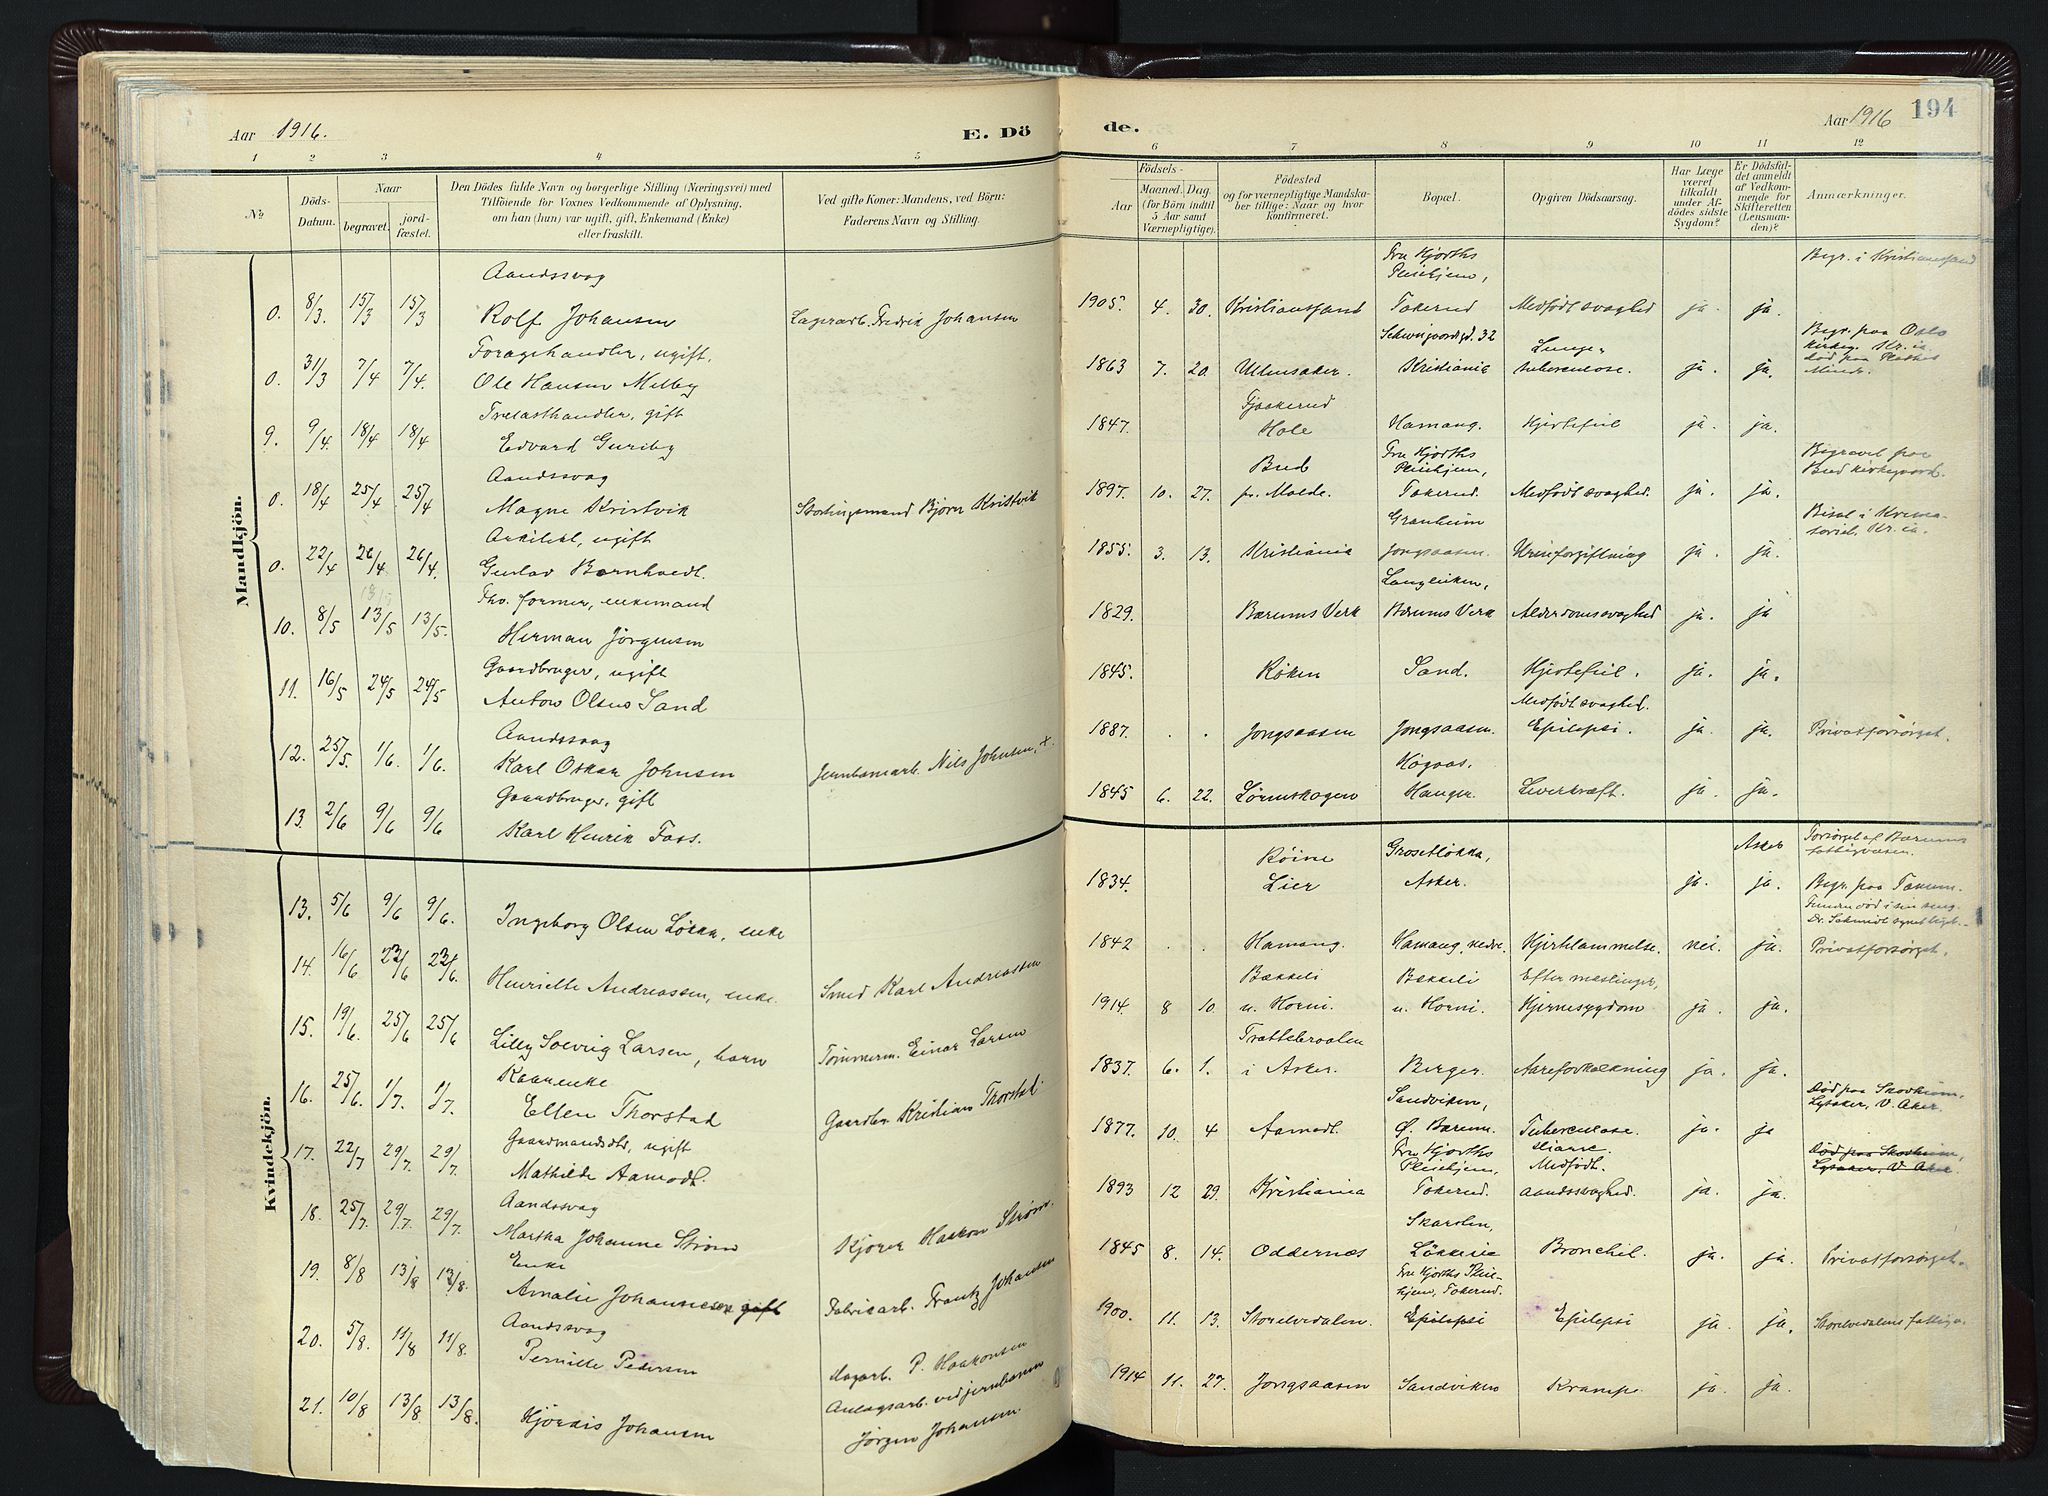 Aar 1916.
E. Dö
de.
Aar 1916
194
1 2 3 4 5
6 7 8 9 10 11 12
No.
Döds-Datum.
Naar
begravet.
jord-fæstet.
Den Dödes fulde Navn og borgerlige Stilling (Næringsvei) med
Tilföiende for Voxnes Vedkommende af Oplysning,
om han (hun) var ugift, gift, Enkemand (Enke)
eller fraskilt.
Ved gifte Koner: Mandens, ved Börn:
Faderens Navn og Stilling.
Födsels-
Aar
Maaned. Dag.
(for Börn indtil
5 Aar samt
Værnepligtige).
Födested
og for værnepligtige Mandska-
ber tillige: Naar og hvor
konfirmeret.
Bopæl.
Opgiven Dödsaarsag.
Har Læge
været
tilkaldt
under Af-
dödes sidste
Sygdom?
Er Dödsfal-
det anmeldt
af Vedkom-
mende for
Skifteretten
(Lensman-
den)?
Anmærkninger.
Mandkjön.
0. 8/3 15/3 15/3 Aandssvag
Rolf Johansen
Lagerarb. Fredrik Johansen
1905. 4. 30. Kristianssand
Fru Hjorths
Pleiehjem,
Tokerud
Medfödt svaghed ja. ja.
Begr. i Kristianssand
0. 31/3 7/4 7/4. Foragehandler, ugift.
Ole Hansen Melby
1863 7. 20. Ullensaker.
Schweigaardsgd. 32
Kristiania
Lunge-
tuberculose. ja. ja.
Begr. paa Oslo
kirkeg. Kr.ia
Död paa
Minde.
9. 9/4. 18/4 18/4 Trælasthandler, gift
Edvard Guriby
1847. Fjækerud
Hole
Hamang. Hjertefeil ja. ja.
0. 18/4 25/4 25/4 Aandssvag
Magne Kristvik
Stortingsmand Björn Kristvik
1897. 10. 27. Bud
pr. Molde.
Fru Hjorths
Pleiehjem,
Tokerud.
Medfödt svaghed. ja. ja.
Begravet paa
Bud kirkegaard.
0. 22/4 26/4 26/4. Arkitekt, ugift
Gustav Bornhoedt.
1855. 3. 13. Kristiania
Granheim
Jongsaasen.
Urinforgiftning ja. ja.
Biset i Krema-
toriet. Kr.ia.
10. 8/5 13/5 13/5. Fhv. former, enkemand
Herman Jörgensen
1829. Bærums Verk
Bærums Verk Alderdomssvaghed ja. ja
11. 16/5 24/5 24/5 Gaardbruger, ugift
Anton Olsen Sand
1845. Röken Sand. Hjertefeil. ja. ja.
12. 25/5. 1/6. 1/6. Aandssvag
Karl Oskar Johnsen
Jernbanearb. Nils Johnsen, +.
1887. . . Jongsaasen Jongsaasen.
Medfödt svaghed.
Epilepsi. ja. ja. Privatforsörget.
13. 2/6 9/6 9/6 Gaardbruger, gift
Karl Henrik Foss.
1845 6. 22. Lörenskogen
Hanger. Leverkræft. ja. ja.
Kvindekjön.
13. 5/6 9/6 9/6. Ingeborg Olsen Lökka, enke
1834. Röine
Lier
Grosetlökka,
Asker.
ja. Asker
ja.
Forsörget af Bærums
fattigvæsen.
Begr. paa Tanum.
14. 16/6 23/6 23/6. Henriette Andreassen, enke.
Smed Karl Andreassen
1842 . . Hamang. Hamang, nedre. Hjertelammelse. nei. ja.
Funden död i sin seng.
Privatforsörget.
15. 19/6. 25/6 25/6 Lilly Solveig Larsen, barn
Tömmerm. Einar Larsen
1914. 8 10. Bækkeli
u. Horni.
Bekkeli
u. Horni.
Efter meslinger,
Hjernesygdom ja. ja.
16. 25/6. 1/7. 1/7. Kaarenke
Ellen Thorstad
Gaardbr. Kristian Thorstad
1837. 6. 1. Trættebraaten
i Asker. Berger. Aareforkalkning ja. ja.
17. 22/7 29/7 29/7. Gaardmandsdtr, ugift
Mathilde Aamodt.
1877. 10. 4 Aamodt.
Sandviken,
Ö. Bærum.
Tuberculose. ja. ja
Död paa Skovheim,
Lysaker, V. Aker.
18. 25/7. 29/7. 29/7. Aandssvag
Martha Johanne Ström
Kjörer Haakon Ström.
1893 12 29. Kristiania
Fru Hjorths
Pleiehjem,
Tokerud.
Medfödt.
aandssvaghed. ja. ja.
Död paa Skovheim,
Lysaker, V. Aker
19. 8/8 13/8 13/8. Enke
Amalie Johannesen gift
Fabrikarb. Frantz Johansen
1845 8. 14. Oddernæs
Bronchit. ja. ja. Privatforsörget.
20. 5/8. 11/8 11/8. Aandssvag
Pernille Pedersen
Dagarb. P. Haakonsen
1900. 11. 13. Storelvedalen.
Fru Hjorths Pleie-
hjem, Tokerud.
Epilepsi Epilepsi ja. ja. Storelvedalens fattigv.
21. 10/8 13/8 13/8. Hjördis Johansen
Anlægsarb. ved jernbanen
Jörgen Johansen.
1914 11. 27. Jongsaasen Sandviken Krampe. ja. ja.